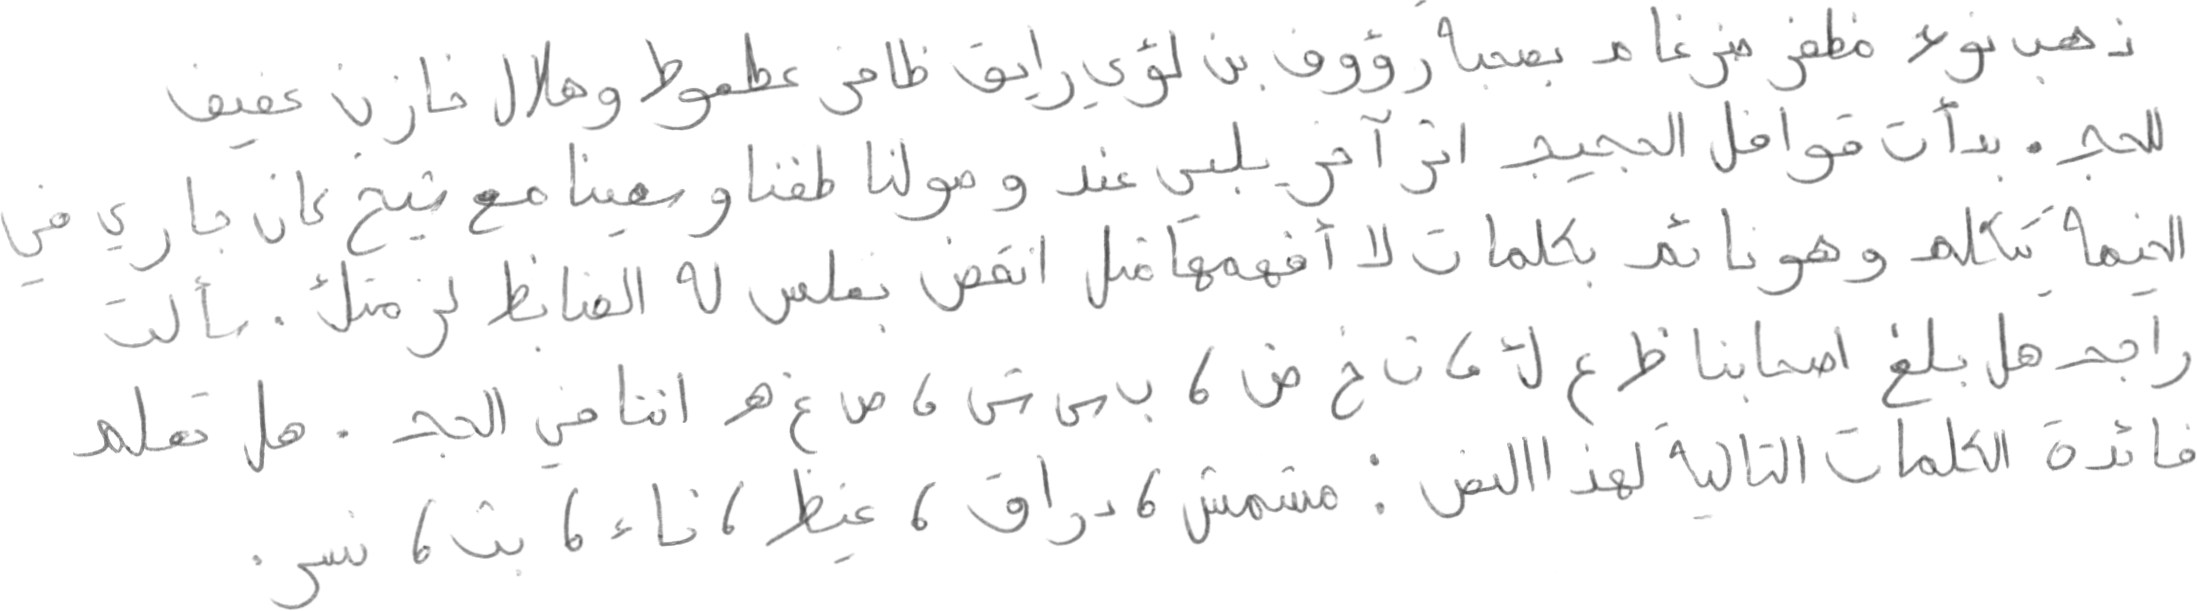 ذهب نوح مظفر ضرغام بصحبة رؤوف بن لؤي رايق ظافر عطعوط وهلال خازن عفيف
للحج. بدأت قوافل الحجيج اثر آخر يلبي عند وصولنا طفنا وسعينا مع شيخ كان جاري في
الخيمة يتكلم وهو نائم بكلمات لا أفهمها مثل انقض بغلس له الضابط لزمتك. سألت
راجح هل بلغ اصحابنا ظ ع ك، ث خ ض، ب س ش، ص غ هـ اننا في الحج. هل تعلم
فائدة الكلمات التالية لهذا النص: مشمش، دراق، غيظ، ناء، بث، نسر.